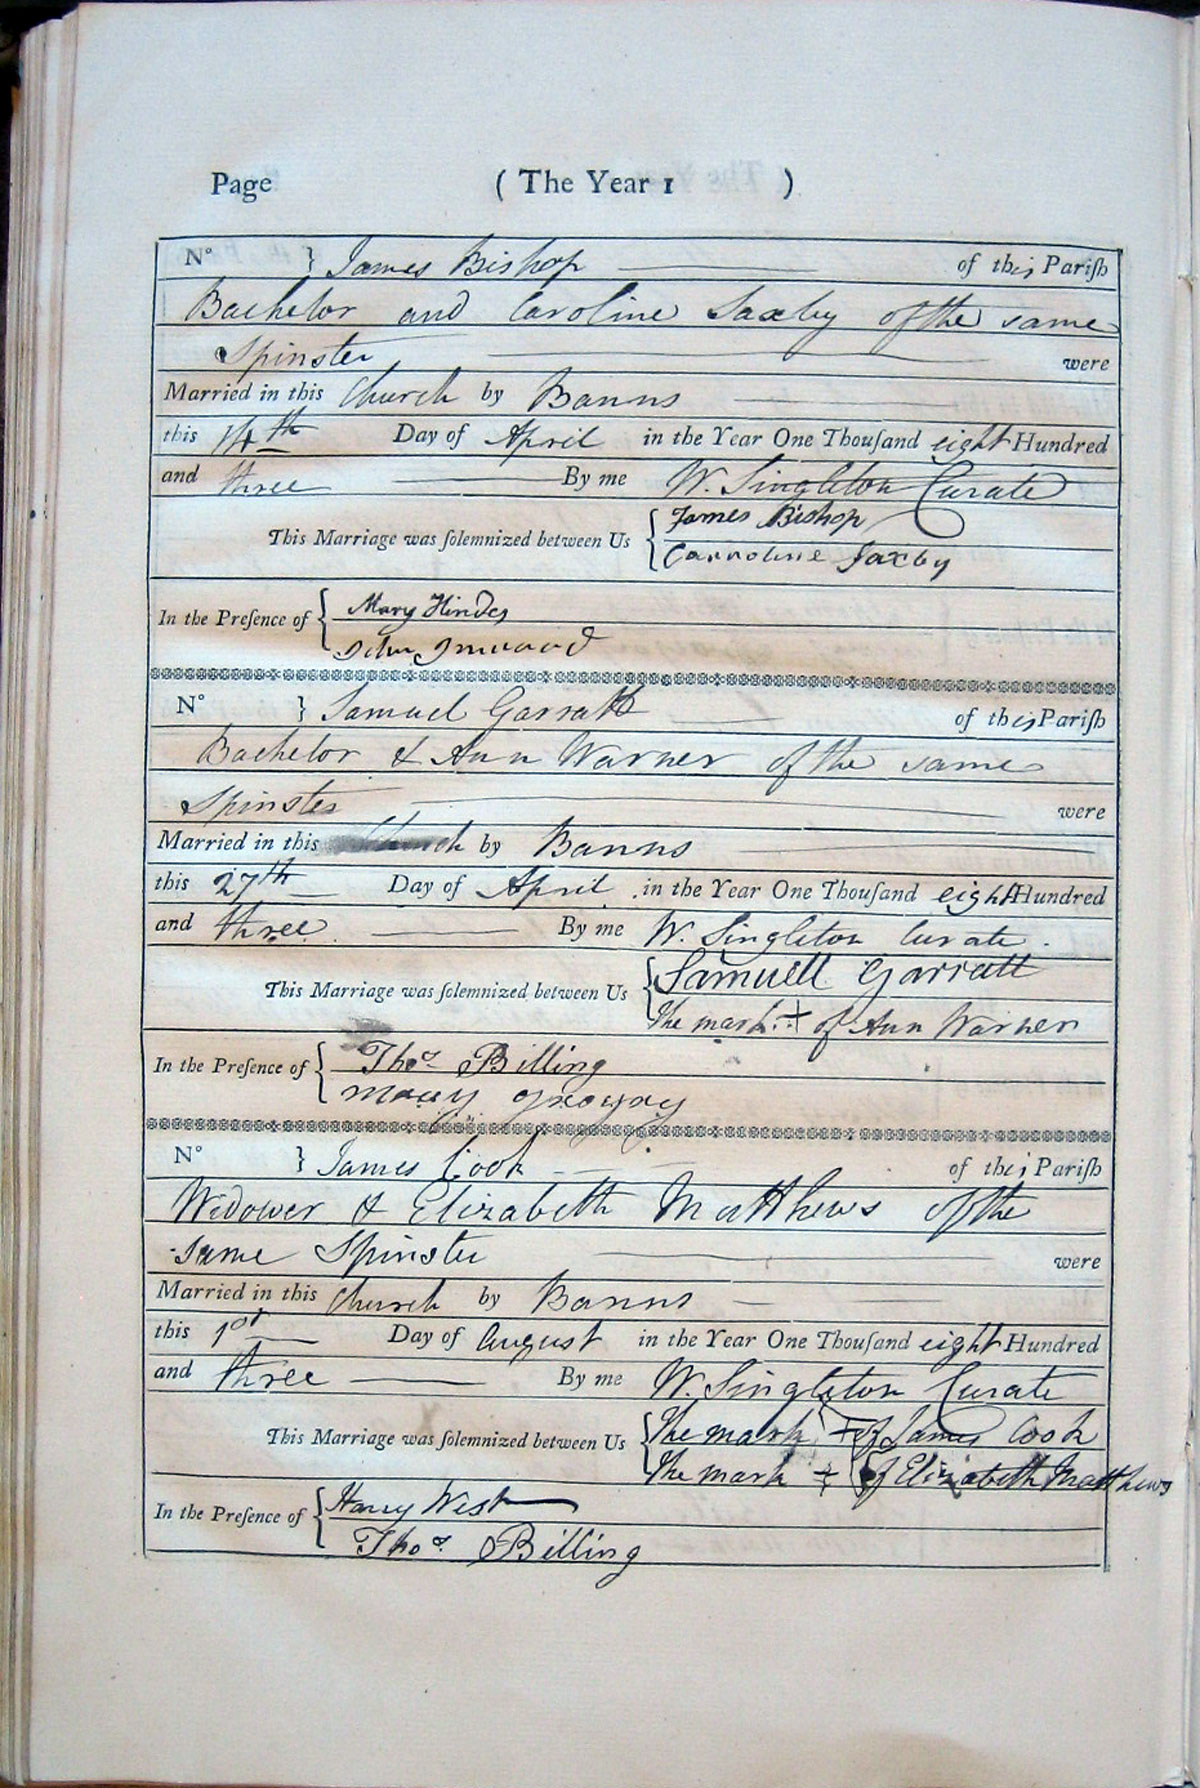 Page ( The Year 1 )
N° } James Bishop of this Pariſh
Bachelor and Caroline Saxby of the same
Spinster were
Married in this Church by Banns
this 14th Day of April in the Year One Thouſand eight Hundred
and three By me W. Singleton Curate
This Marriage was ſolemnized between Us { James Bishop
Carroline Saxby
In the Preſence of { Mary Hindes
John Inwood
N° } Samuel Garratt of this Pariſh
Bachelor & Ann Warner of the same
Spinster were
Married in this Church by Banns
this 27th Day of April in the Year One Thouſand eight Hundred
and three By me W. Singleton Curate.
This Marriage was ſolemnized between Us { Samuell Garratt
The mark + of Ann Warner
In the Preſence of { Thos. Billing
mary
N° } James Cook of this Pariſh
Widower & Elizabeth Matthews of the
same Spinster were
Married in this Church by Banns
this 1st Day of August in the Year One Thouſand eight Hundred
and three By me W. Singleton Curate
This Marriage was ſolemnized between Us { The mark + of James Cook
The mark + of Elizabeth Matthews
In the Preſence of { Harry West
Thos. Billing